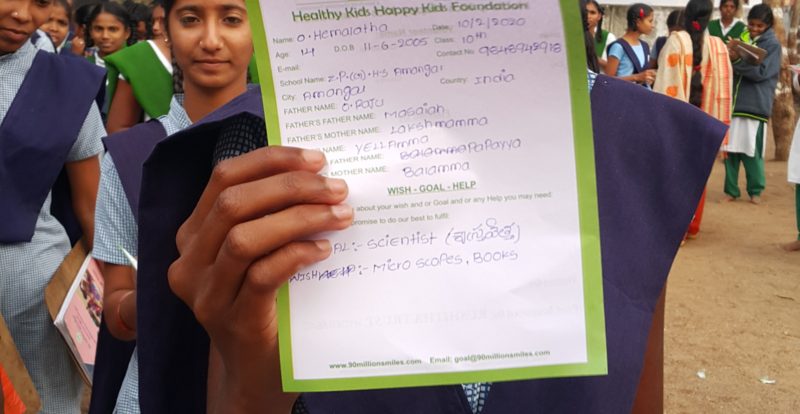 Healthy Kids Happy Kids Foundation
Name: O. Hemalatha Date: 10/2/2020
Age: 14 D.O.B 11-6-2005 Class: 10th
E-mail: Contact No 9848942918
School Name: Z.P.(G).H.S Amangal
City: Amangal Country: India
FATHER NAME: O. RAJU
FATHER'S FATHER NAME: Masaiah
FATHER'S MOTHER NAME: Lakshmamma
NAME: YELLAMMA
FATHER NAME: BalammaPaPayya
MOTHER NAME: Balamma
WISH - GOAL - HELP
about your wish and or Goal and or any Help you may need:
promise to do our best to fulfil:
AL:- Scientist
WISH :- Micro scopes, BOOKS
www.90millionsmiles.com Email: goal@90millionsmiles.com